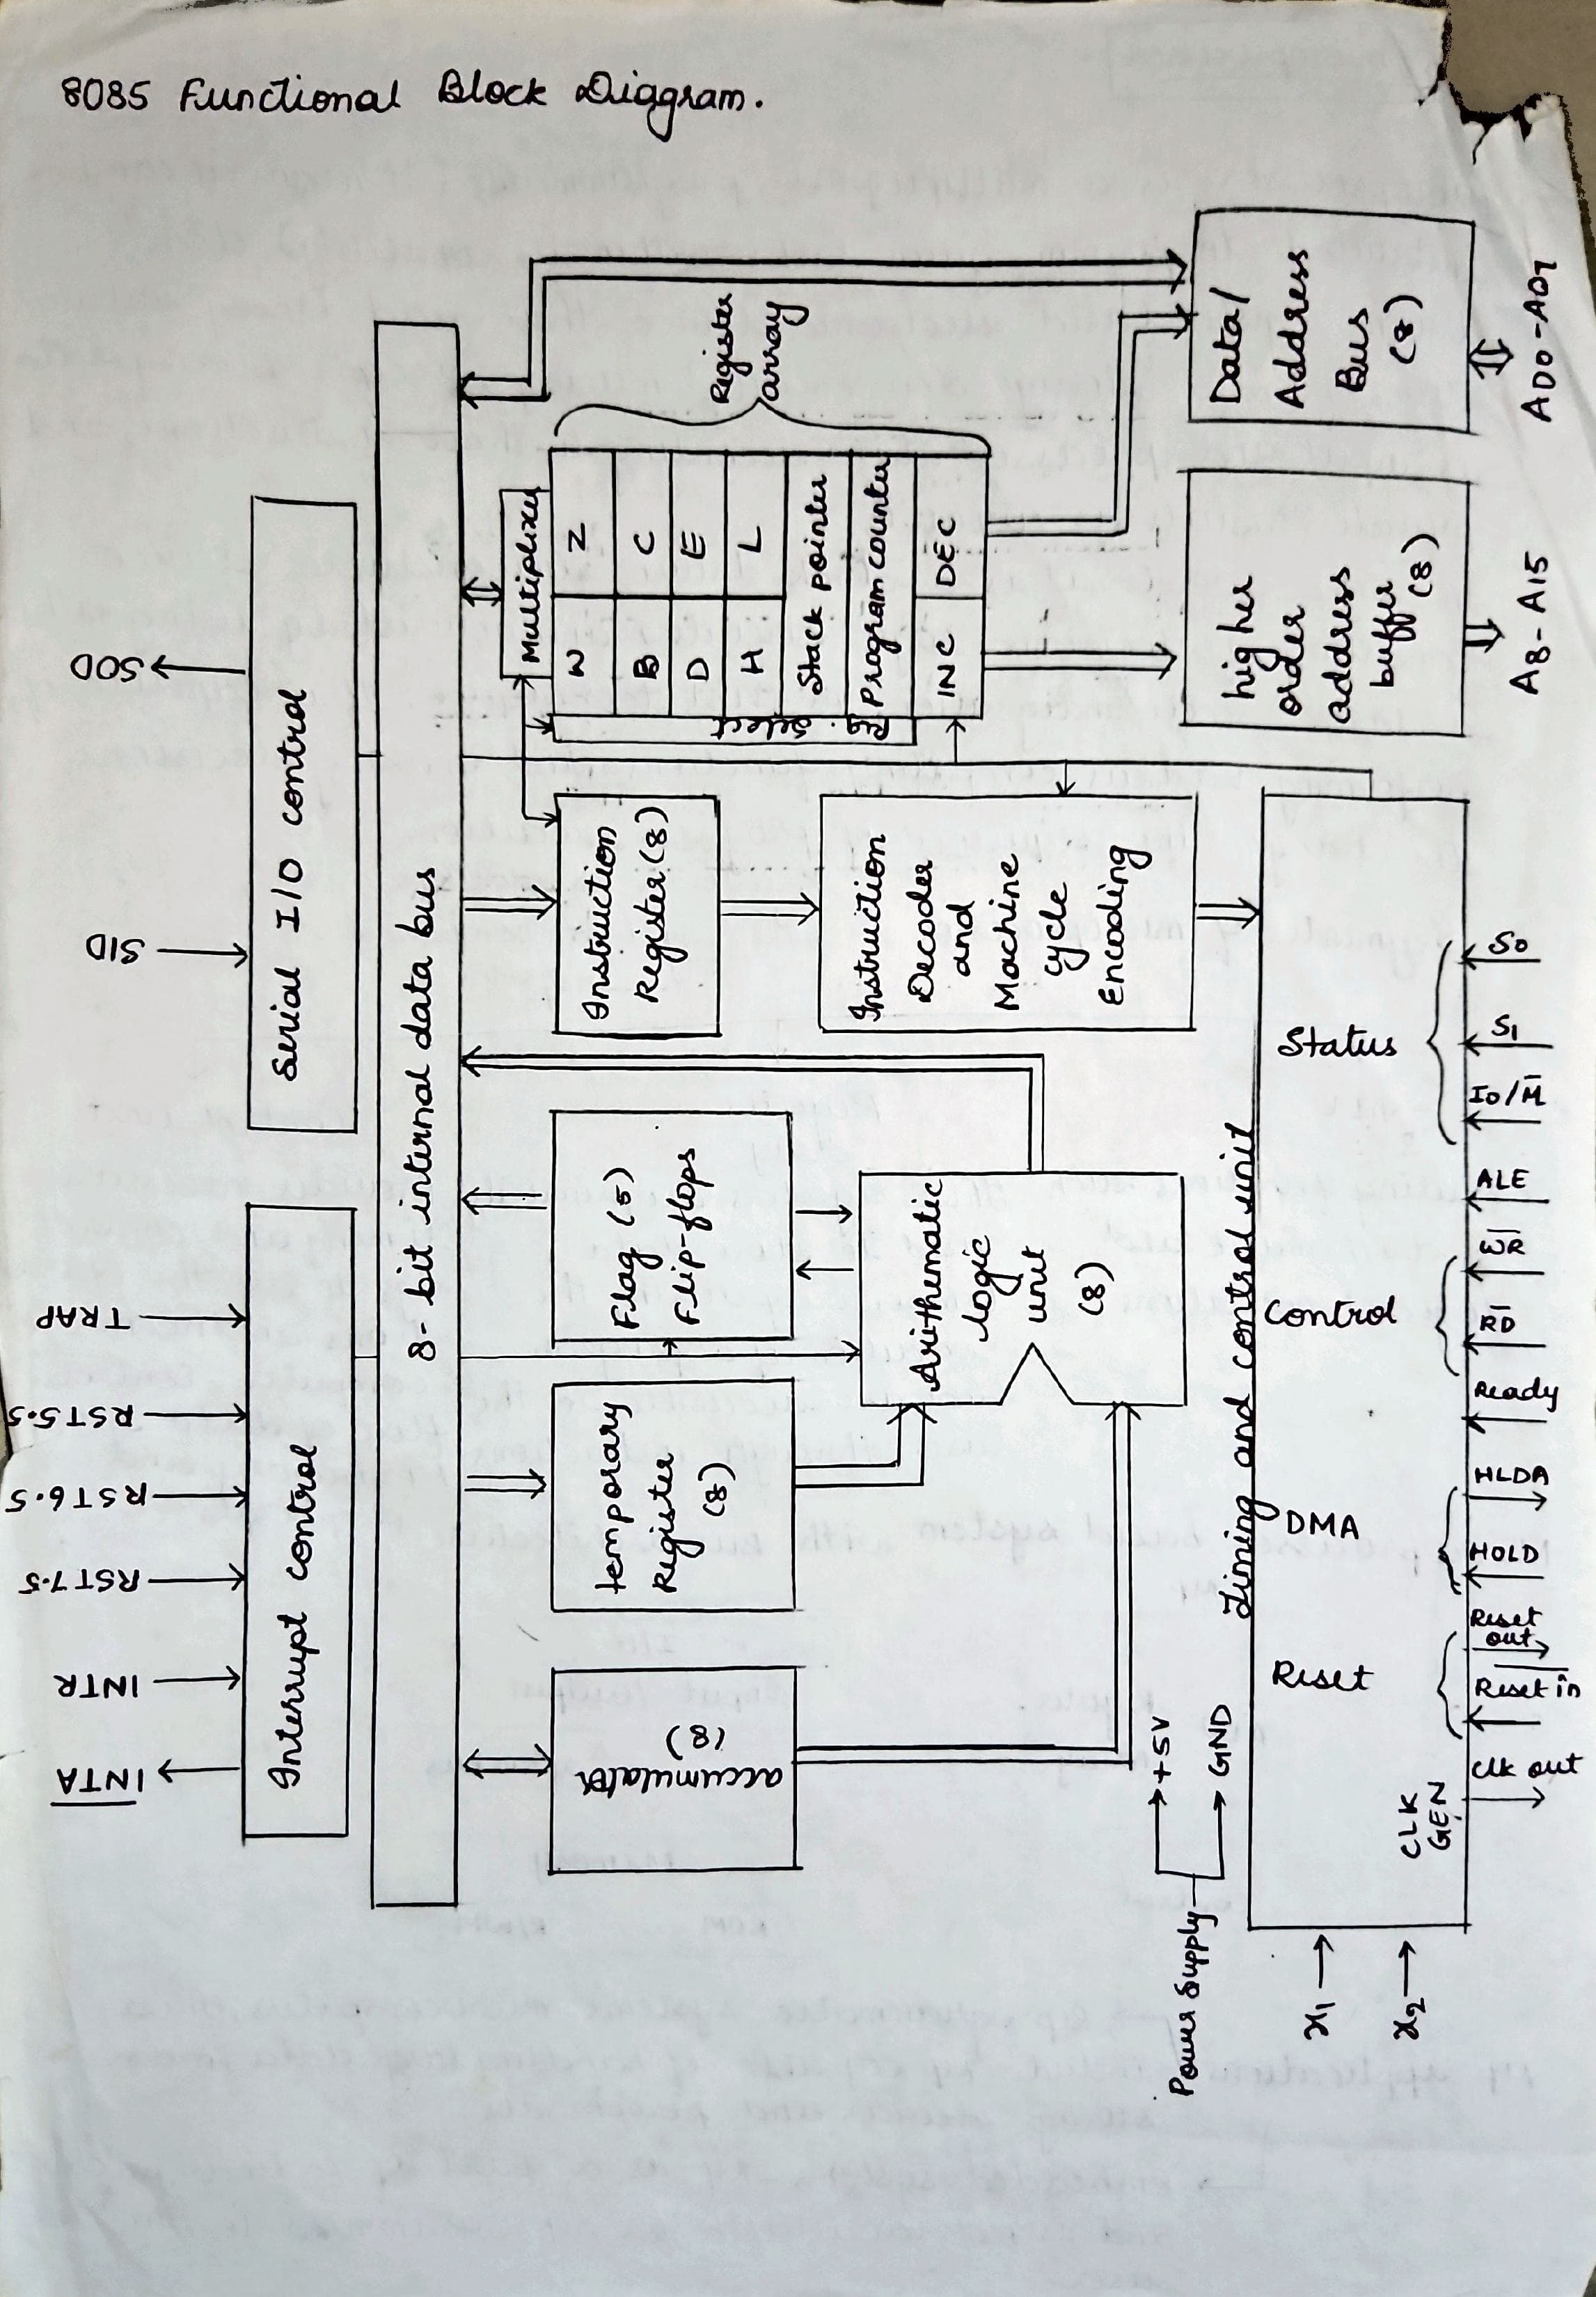 8085 Functional Block Diagram.
INTA
INTR
RST7.5
RST6.5
RST5.5
TRAP
SID
SOD
Interrupt control
Serial I/O control
8-bit internal data bus
accumulator
(8)
temporary
Register
(8)
Flag (5)
Flip-flops
Arithematic
logic
unit
(8)
Instruction
Register(8)
Instruction
Decoder
and
Machine
cycle
Encoding
Multiplexer
Reg. select
W Z
B C
D E
H L
Stack pointer
Program counter
INC DEC
Register
array
Power Supply
+5V
GND
Timing and control unit
x1
x2
CLK
GEN
Reset
DMA
Control
Status
Clk out
Reset in
Reset
out
HOLD
HLDA
Ready
RD
WR
ALE
IO/M̅
S1
S0
higher
order
address
buffer
(8)
A8-A15
Data/
Address
Bus
(8)
AD0-AD7